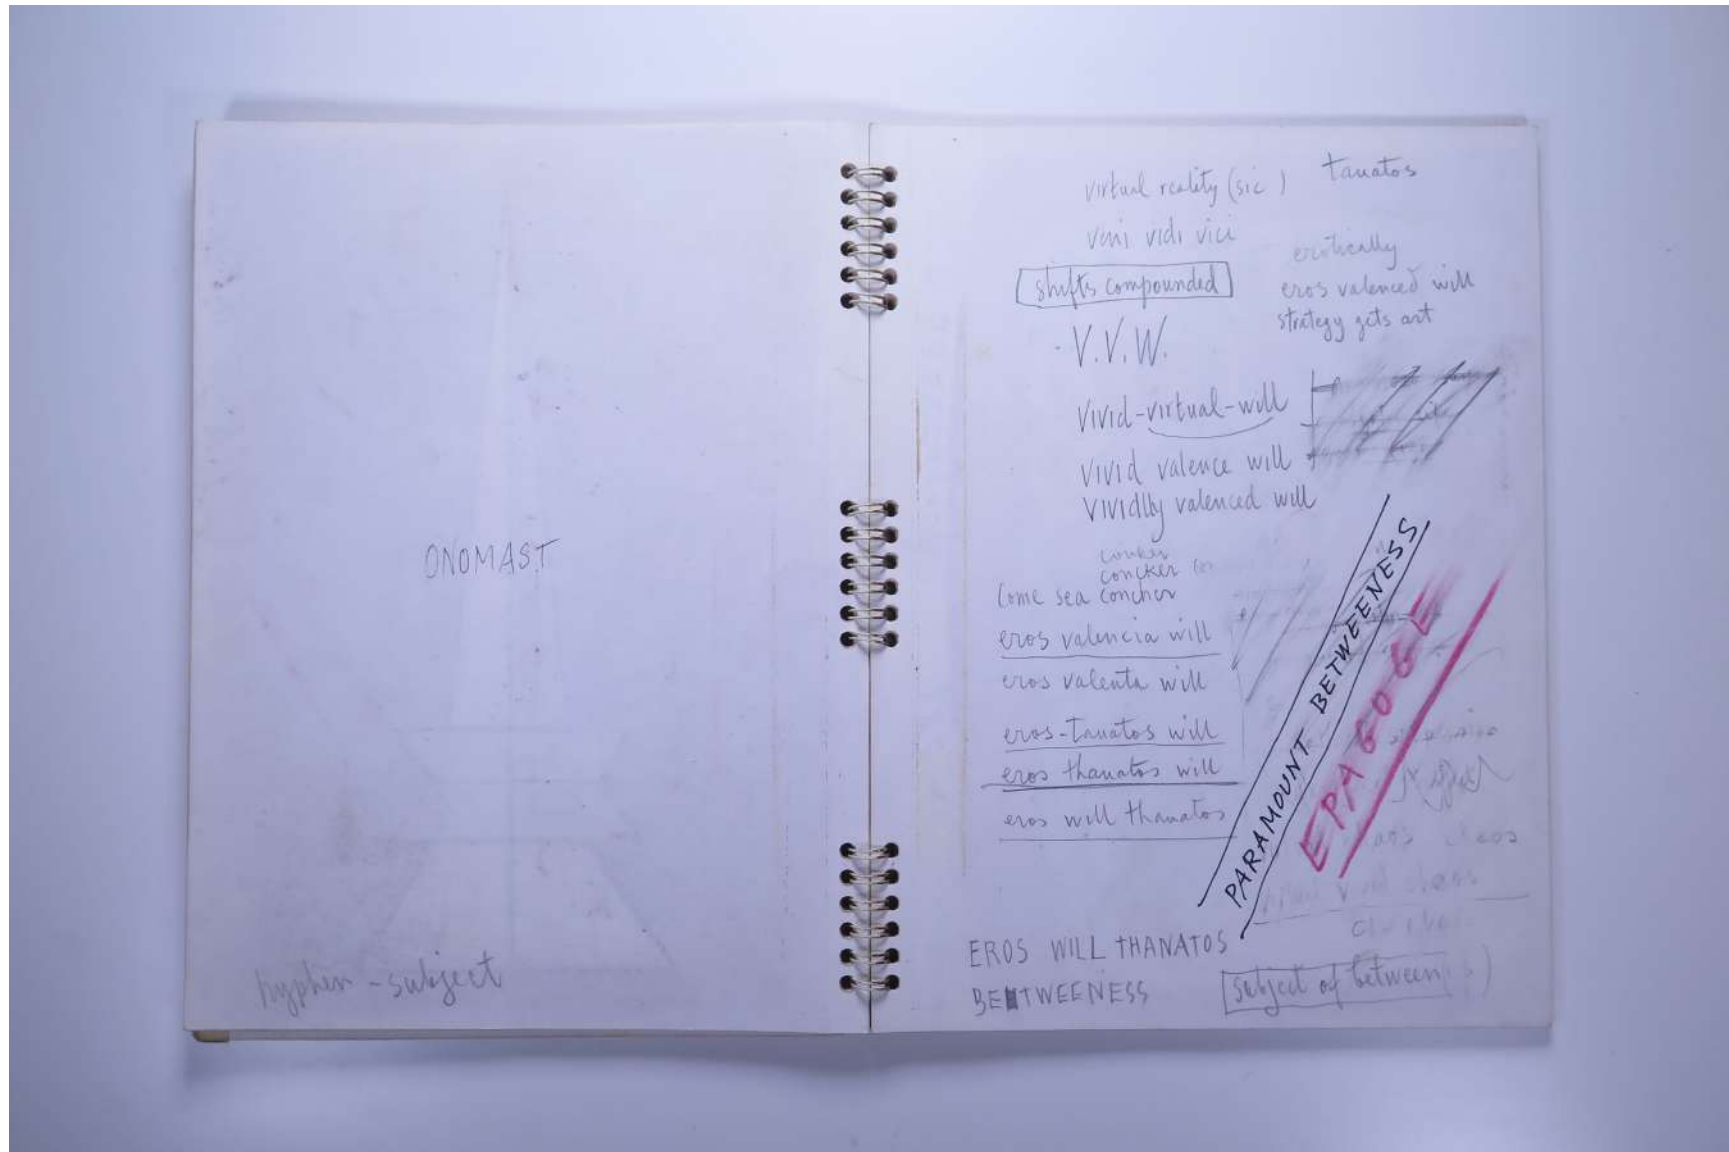 ONOMAST
hyphen - subject
virtual reality (sic)
tanatos
veni vidi vici
erotically
shifts compounded
eros valenced will
strategy gets art
V.V.W.
vivid-virtual-will
vivid valence will
vividly valenced will
conker
concker
come sea concher
eros valencia will
eros valenta will
eros-tanatos will
eros thanatos will
eros will thanatos
PARAMOUNT BETWEENESS
EPAGOGE
EROS WILL THANATOS
BETWEENESS
subject of between